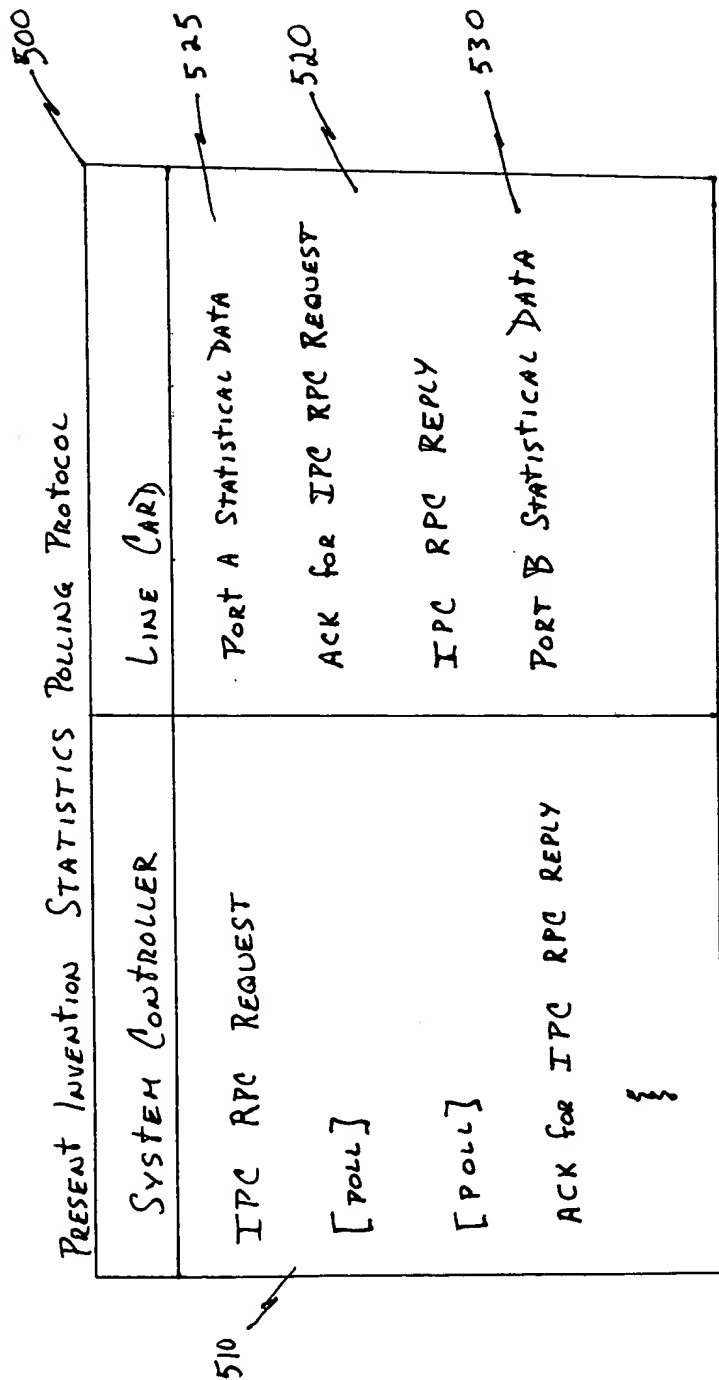 PRESENT INVENTION STATISTICS POLLING PROTOCOL
500
SYSTEM CONTROLLER
LINE CARD
IPC RPC REQUEST
PORT A STATISTICAL DATA
525
[POLL]
ACK for IPC RPC REQUEST
520
[POLL]
IPC RPC REPLY
ACK for IPC RPC REPLY
PORT B STATISTICAL DATA
530
510